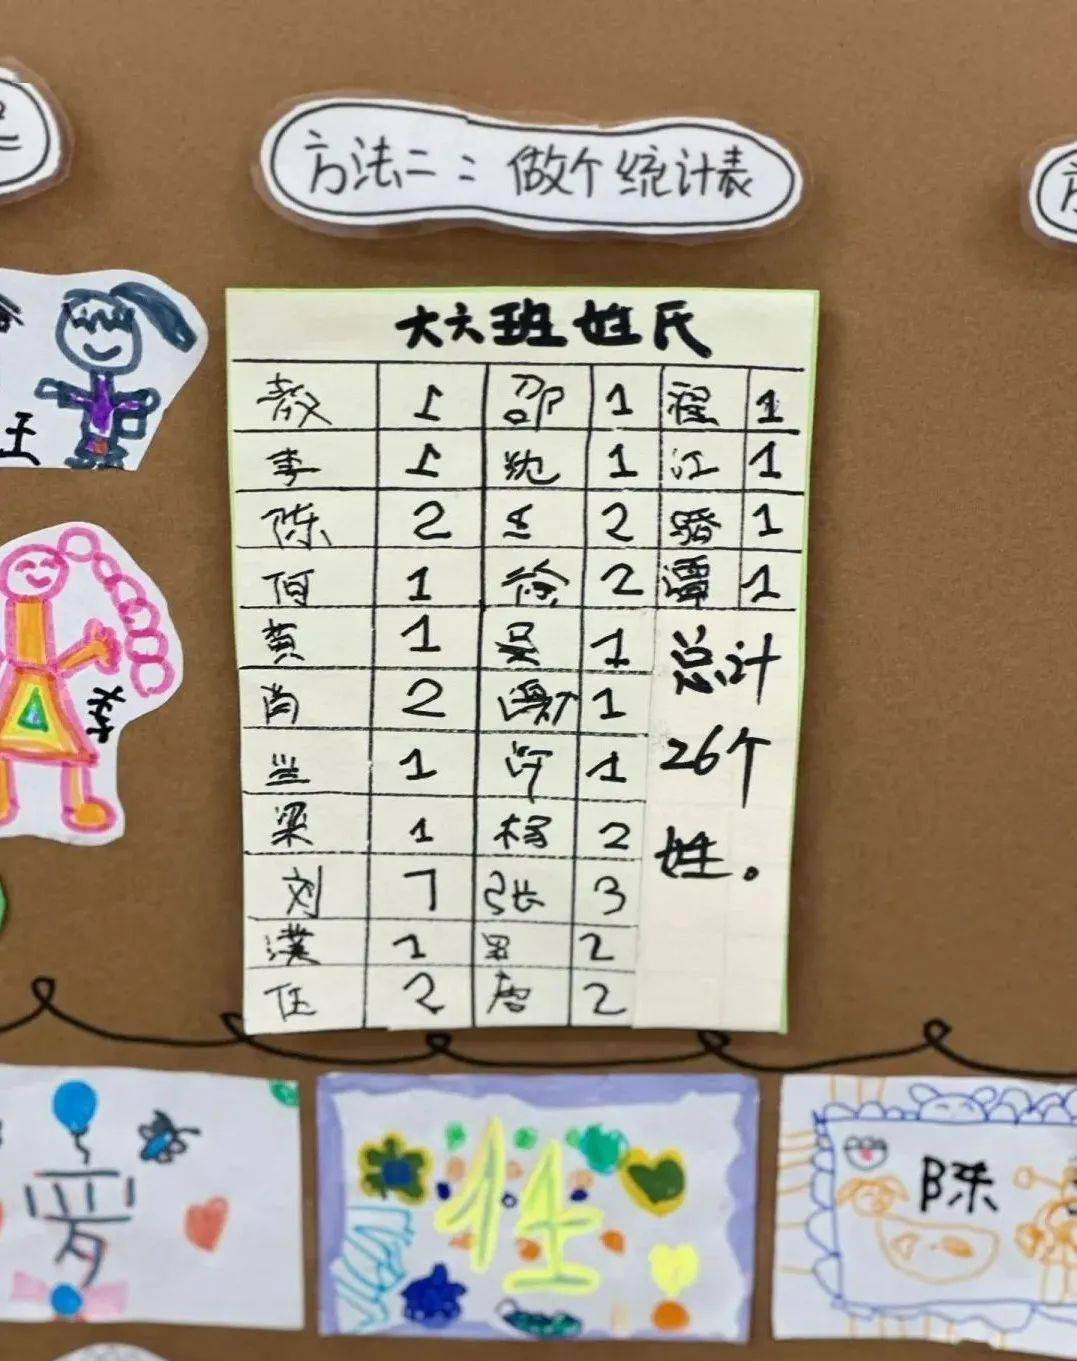 方法二：做个统计表
大六班姓氏
敖 1 邵 1 程 1
李 1 沈 1 江 1
陈 2 2 骆 1
何 1 徐 2 谭 1
黄 1 吴 1 总计
肖 2 谢 1
兰 1 许 1 26个
梁 1 杨 2 姓。
刘 7 张 3
濮 1 2
任 2 唐 2
王
李
爱
陈